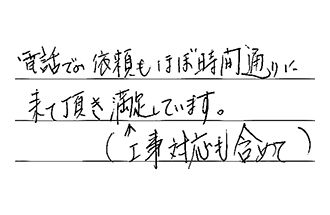 電話での依頼もほぼ時間通りに
来て頂き満足しています。
(↑工事対応も含めて)